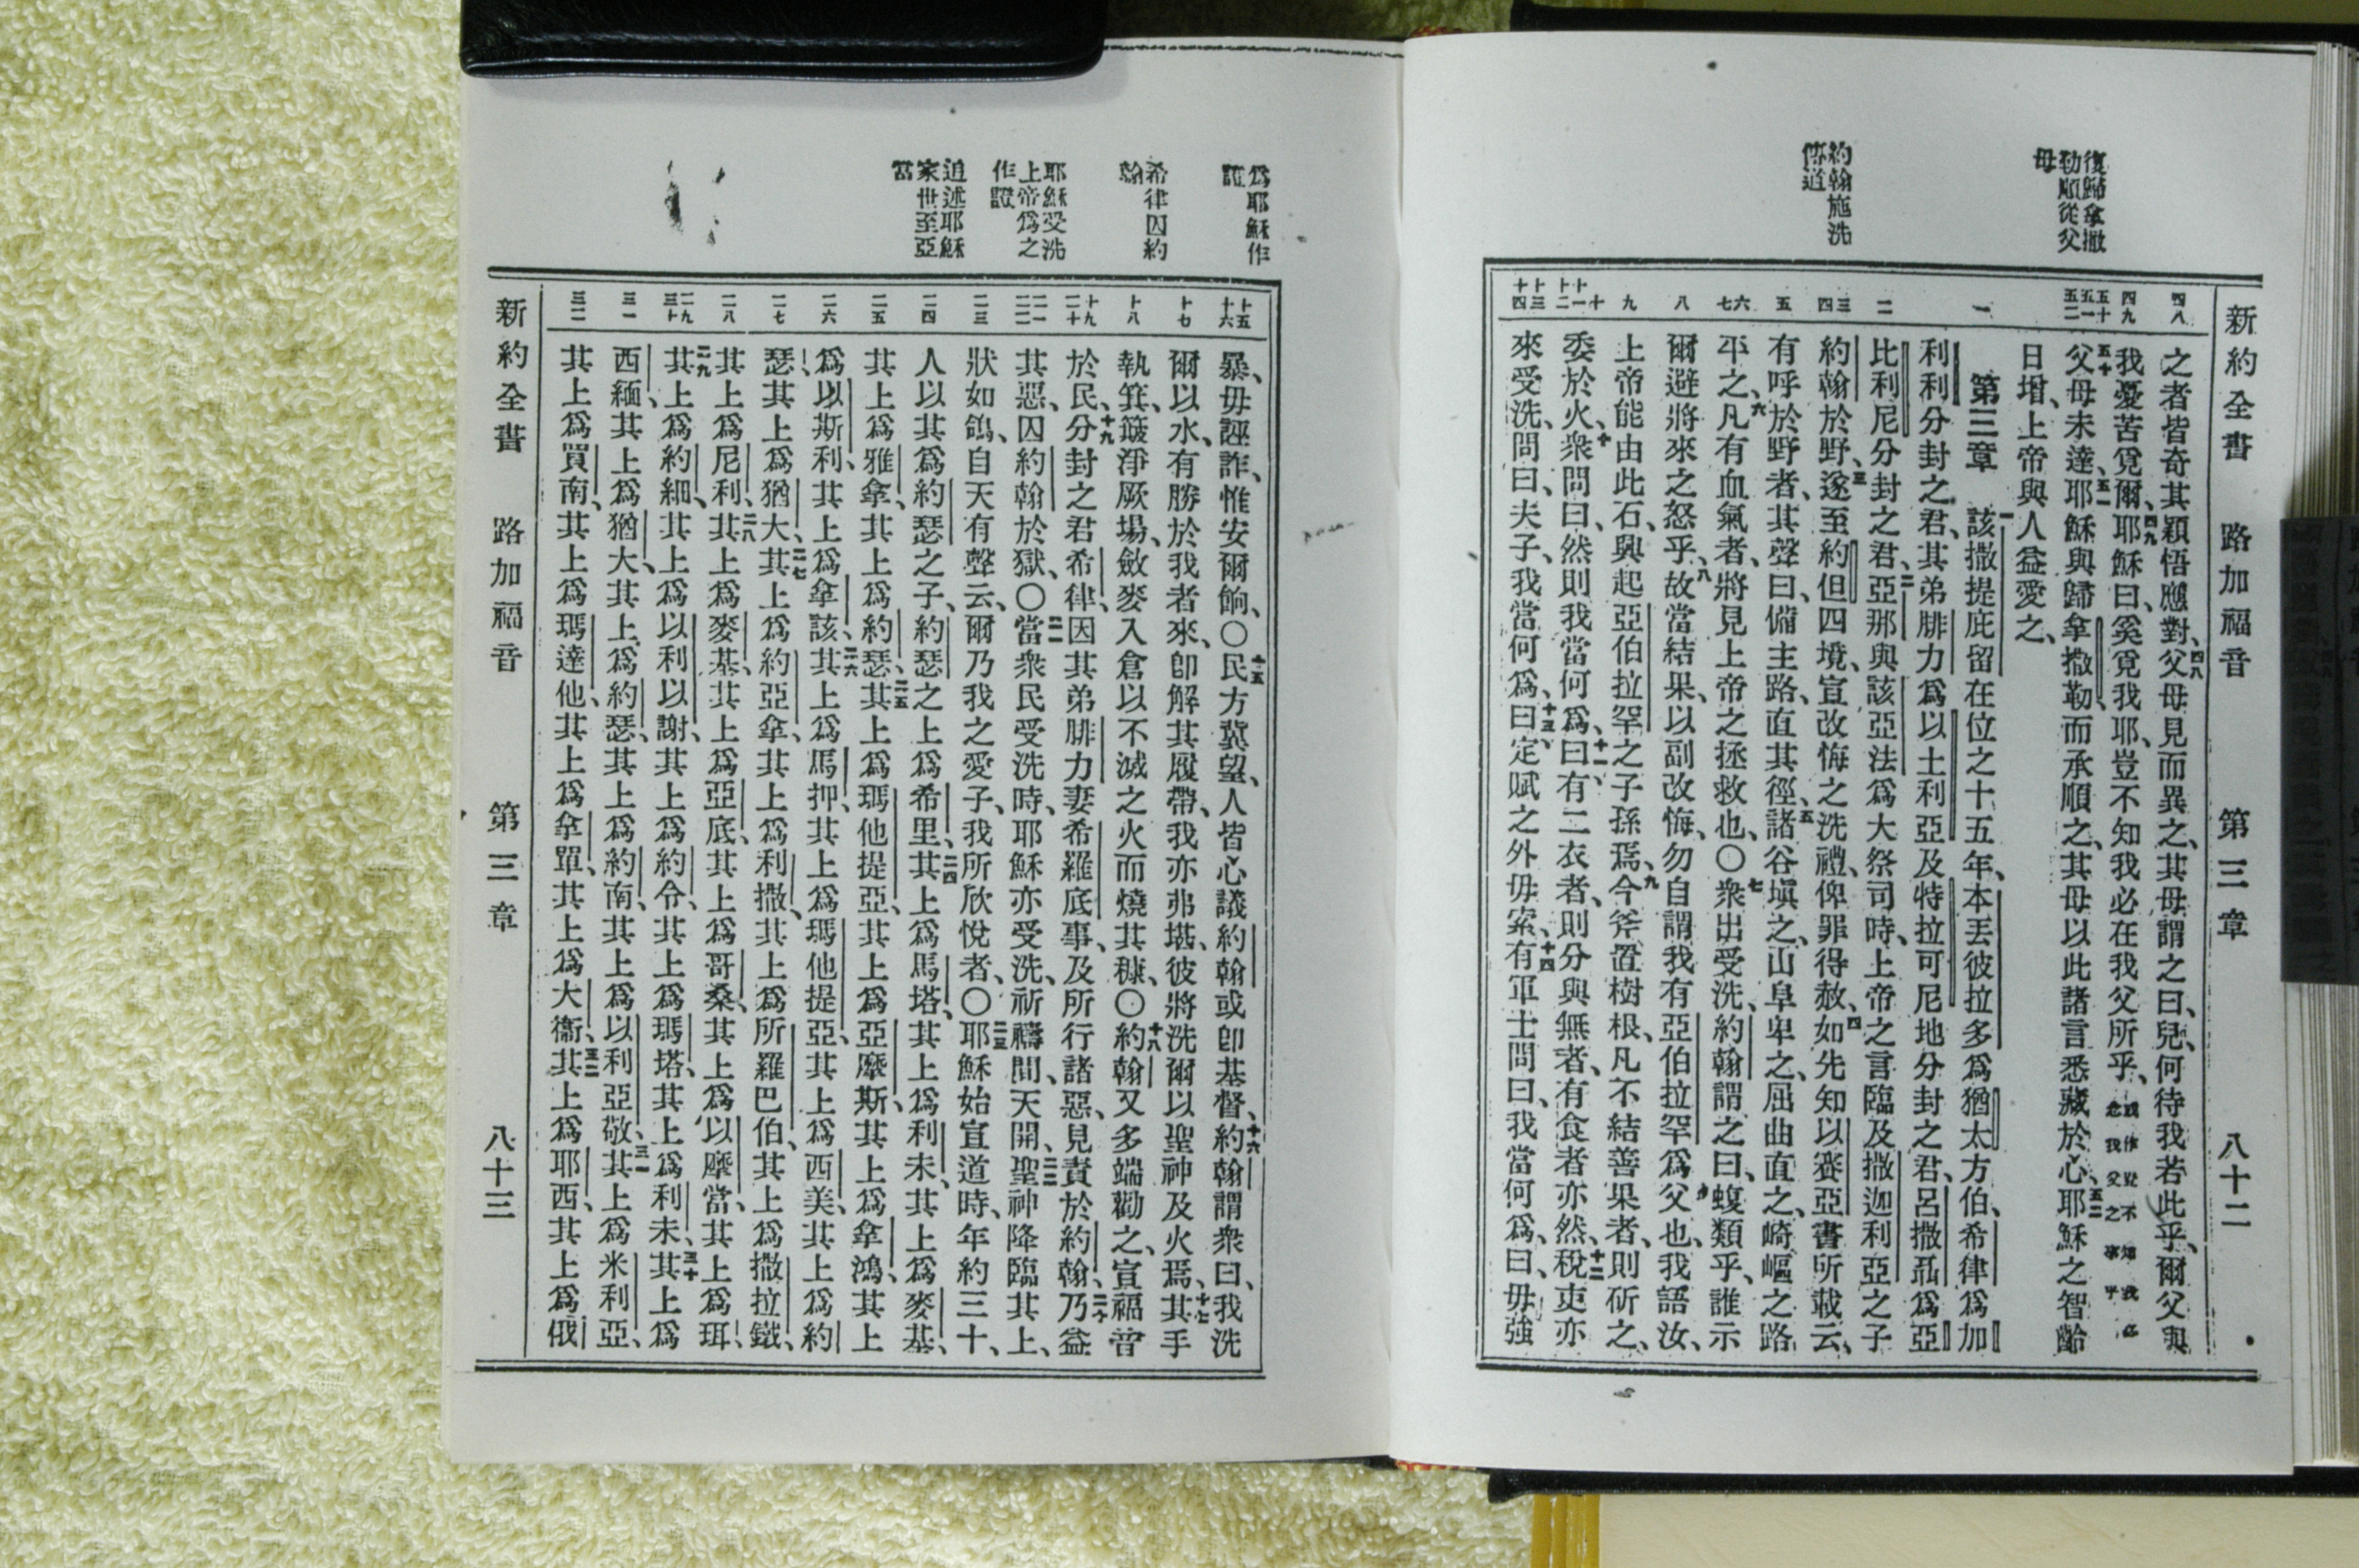 新約全書　路加福音　第三章　八十二
復歸拿撒
勒順從父
母
約翰施洗
傳道
四八
四九
五十
五一
五二
一
二
三
四
五
六
七
八
九
十
十一
十二
十三
十四
之者皆奇其穎悟應對、四八父母見而異之、其母謂之曰、兒、何待我若此乎、爾父與
我憂苦覓爾、四九耶穌曰、奚覓我耶、豈不知我必在我父所乎、或作豈不知我必念我父之事乎
五十父母未達、五一耶穌與歸拿撒勒而承順之、其母以此諸言悉藏於心、五二耶穌之智齡
日增、上帝與人益愛之、
第三章　一該撒提庇留在位之十五年、本丟彼拉多爲猶太方伯、希律爲加
利利分封之君、其弟腓力爲以土利亞及特拉可尼地分封之君、呂撒聶爲亞
比利尼分封之君、二亞那與該亞法爲大祭司時、上帝之言臨及撒迦利亞之子
約翰於野、三遂至約但四境、宣改悔之洗禮、俾罪得赦、四如先知以賽亞書所載云、
有呼於野者、其聲曰、備主路、直其徑、五諸谷塡之、山阜卑之、屈曲直之、崎嶇之路
平之、六凡有血氣者、將見上帝之拯救也、〇七衆出受洗、約翰謂之曰、蝮類乎、誰示
爾避將來之怒乎、八故當結果、以副改悔、勿自謂我有亞伯拉罕爲父也、我語汝、
上帝能由此石、興起亞伯拉罕之子孫焉、九今斧置樹根、凡不結善果者、則斫之、
委於火、十衆問曰、然則我當何爲、十一曰、有二衣者、則分與無者、有食者亦然、十二稅吏亦
來受洗、問曰、夫子、我當何爲、十三曰、定賦之外毋索、十四有軍士問曰、我當何爲、曰、毋強
爲耶穌作
證
希律囚約
翰
耶穌受洗
上帝爲之
作證
追述耶穌
家世至亞
當
十五
十六
十七
十八
十九
二十
二一
二二
二三
二四
二五
二六
二七
二八
二九
三十
三一
三二
暴、毋誣詐、惟安爾餉、〇十五民方冀望、人皆心議約翰或卽基督、十六約翰謂衆曰、我洗
爾以水、有勝於我者來、卽解其履帶、我亦弗堪、彼將洗爾以聖神及火焉、十七其手
執箕、簸淨厥場、斂麥入倉、以不滅之火而燒其糠、〇十八約翰又多端勸之、宣福音
於民、十九分封之君希律、因其弟腓力妻希羅底事、及所行諸惡、見責於約翰、二十乃益
其惡、囚約翰於獄、〇二一當衆民受洗時、耶穌亦受洗、祈禱間、天開、二二聖神降臨其上、
狀如鴿、自天有聲云、爾乃我之愛子、我所欣悅者、〇二三耶穌始宣道時、年約三十、
人以其爲約瑟之子、約瑟之上爲希里、二四其上爲馬塔、其上爲利未、其上爲麥基、
其上爲雅拿、其上爲約瑟、二五其上爲瑪他提亞、其上爲亞摩斯、其上爲拿鴻、其上
爲以斯利、其上爲拿該、二六其上爲馬押、其上爲瑪他提亞、其上爲西美、其上爲約
瑟、其上爲猶大、二七其上爲約亞拿、其上爲利撒、其上爲所羅巴伯、其上爲撒拉鐵、
其上爲尼利、二八其上爲麥基、其上爲亞底、其上爲哥桑、其上爲以摩當、其上爲珥、
二九其上爲約細、其上爲以利以謝、其上爲約令、其上爲瑪塔、其上爲利未、三十其上爲
西緬、其上爲猶大、其上爲約瑟、其上爲約南、其上爲以利亞敬、三一其上爲米利亞、
其上爲買南、其上爲瑪達他、其上爲拿單、其上爲大衞、三二其上爲耶西、其上爲俄
新約全書　路加福音　第三章　八十三